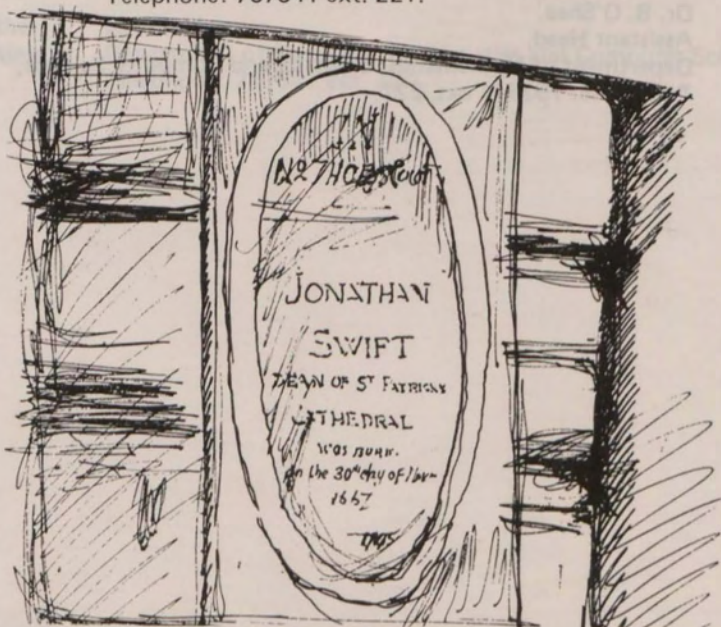 Telephone: 767541 ext. 221.
IN
No 7 HOEY'S Court
JONATHAN
SWIFT
DEAN OF ST PATRICKS
CATHEDRAL
was BORN
on the 30th day of Nov
1667